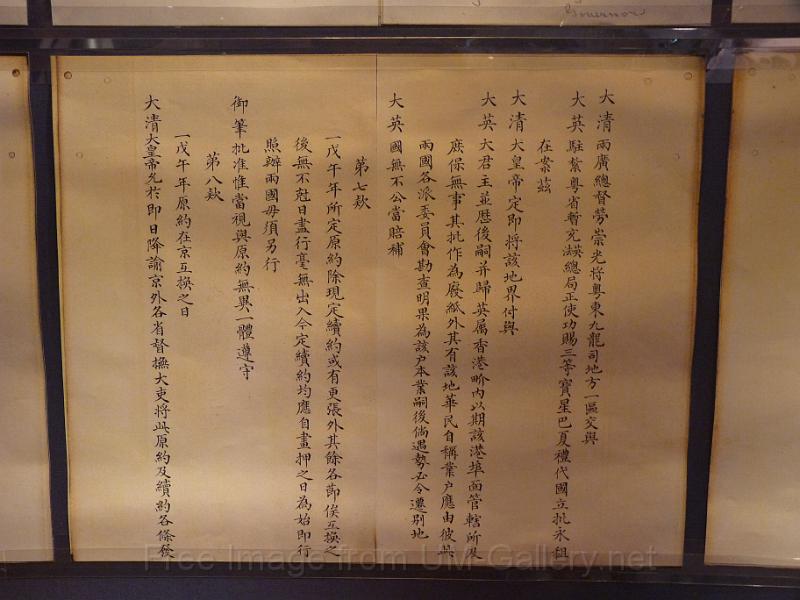 Governor
大清兩廣總督勞崇光將粵東九龍司地方一區交與
大英駐紮粵省暫充英法總局正使功賜三等寶星巴夏禮代國立批永租
在案茲
大清大皇帝定即將該地界付與
大英大君主並歷後嗣并歸英屬香港界內以期該港埠面管轄所及
庶保無事其批作為廢紙外其有該地華民自稱業戶應由彼此
兩國各派委員會勘查明果為該戶本業嗣後倘遇勢必令遷別地
大英國無不公當賠補
第七款
一戊午年所定原約除現定續約或有更張外其餘各節俟互換之
後無不尅日盡行毫無出入今定續約均應自畫押之日為始即行
照辦兩國毋須另行
御筆批准惟當視與原約無異一體遵守
第八款
一戊午年原約在京互換之日
大清大皇帝允於即日降諭京外各省督撫大吏將此原約及續約各條發
Free Image from UM Gallery.net